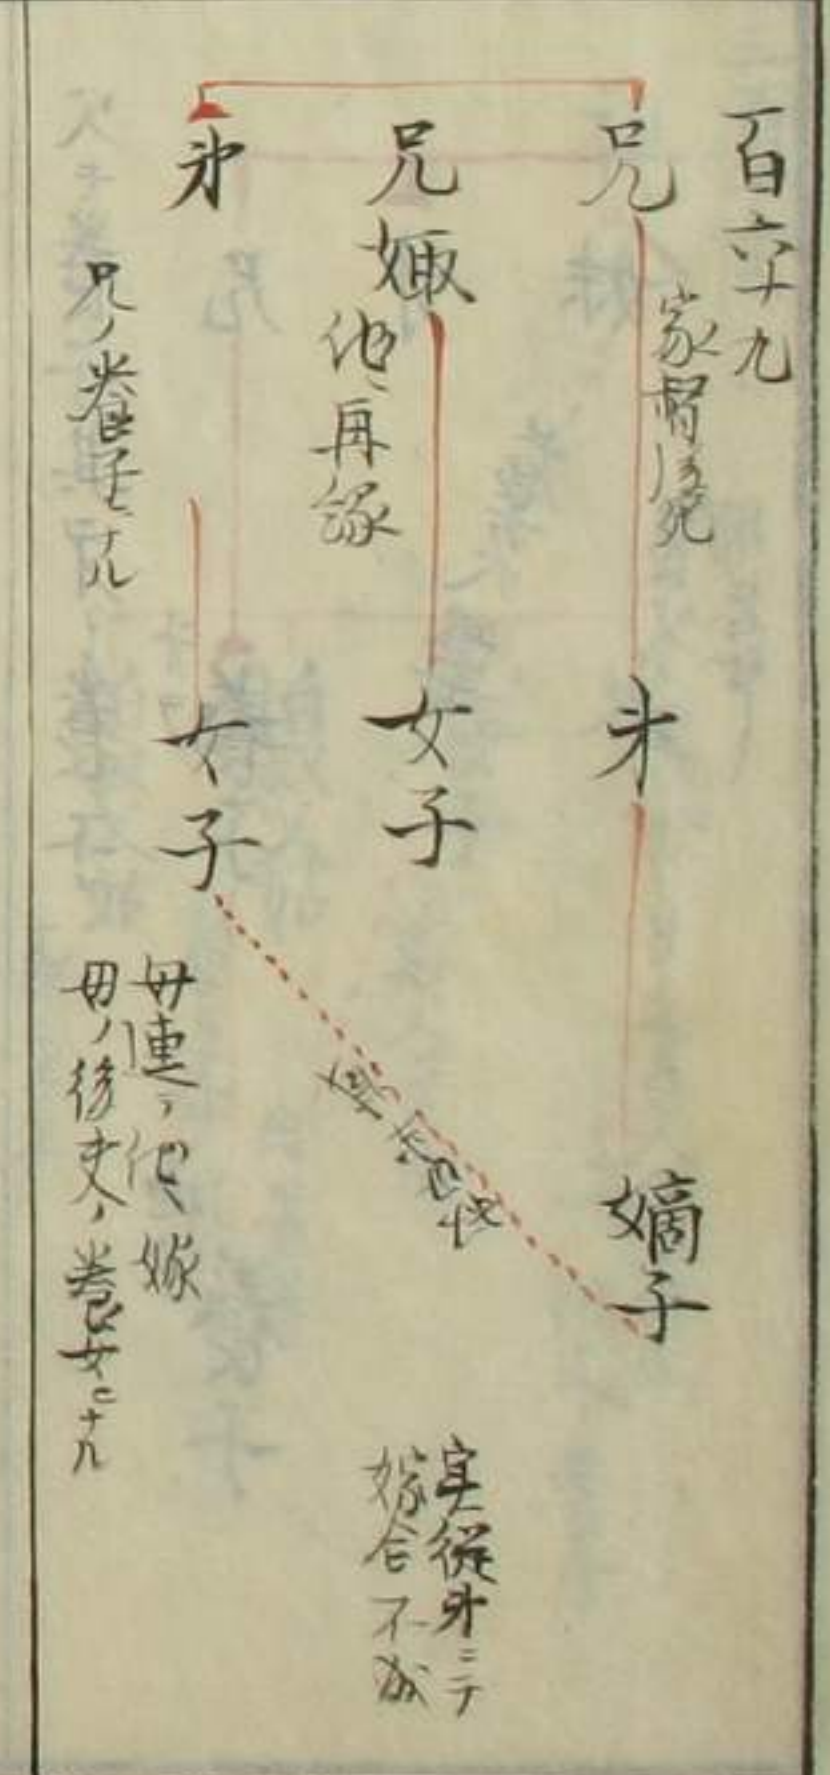 百六十九
兄
家督後死
弟
嫡子
兄娵
他ヘ再縁
女子
実従弟ニテ
嫁合不成
弟
兄ノ養子ニナル
女子
母連テ他ヘ嫁
母ノ後夫ノ養女ニナル